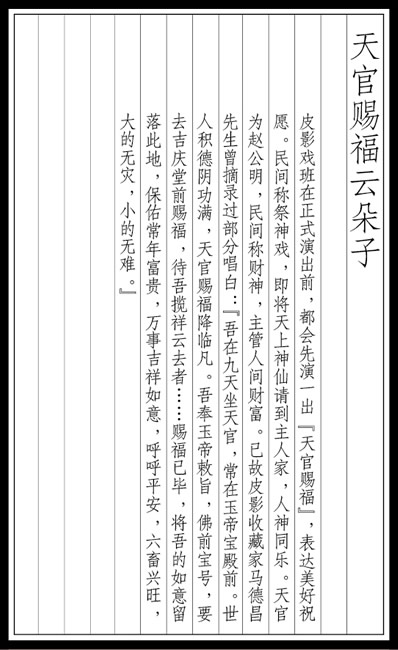 天官赐福云朵子
皮影戏班在正式演出前，都会先演一出『天官赐福』，表达美好祝
愿。民间称祭神戏，即将天上神仙请到主人家，人神同乐。天官
为赵公明，民间称财神，主管人间财富。已故皮影收藏家马德昌
先生曾摘录过部分唱白：『吾在九天坐天官，常在玉帝宝殿前。世
人积德阴功满，天官赐福降临凡。吾奉玉帝敕旨，佛前宝号，要
去吉庆堂前赐福，待吾揽祥云去者……赐福已毕，将吾的如意留
落此地，保佑常年富贵，万事吉祥如意，呼呼平安，六畜兴旺，
大的无灾，小的无难。』